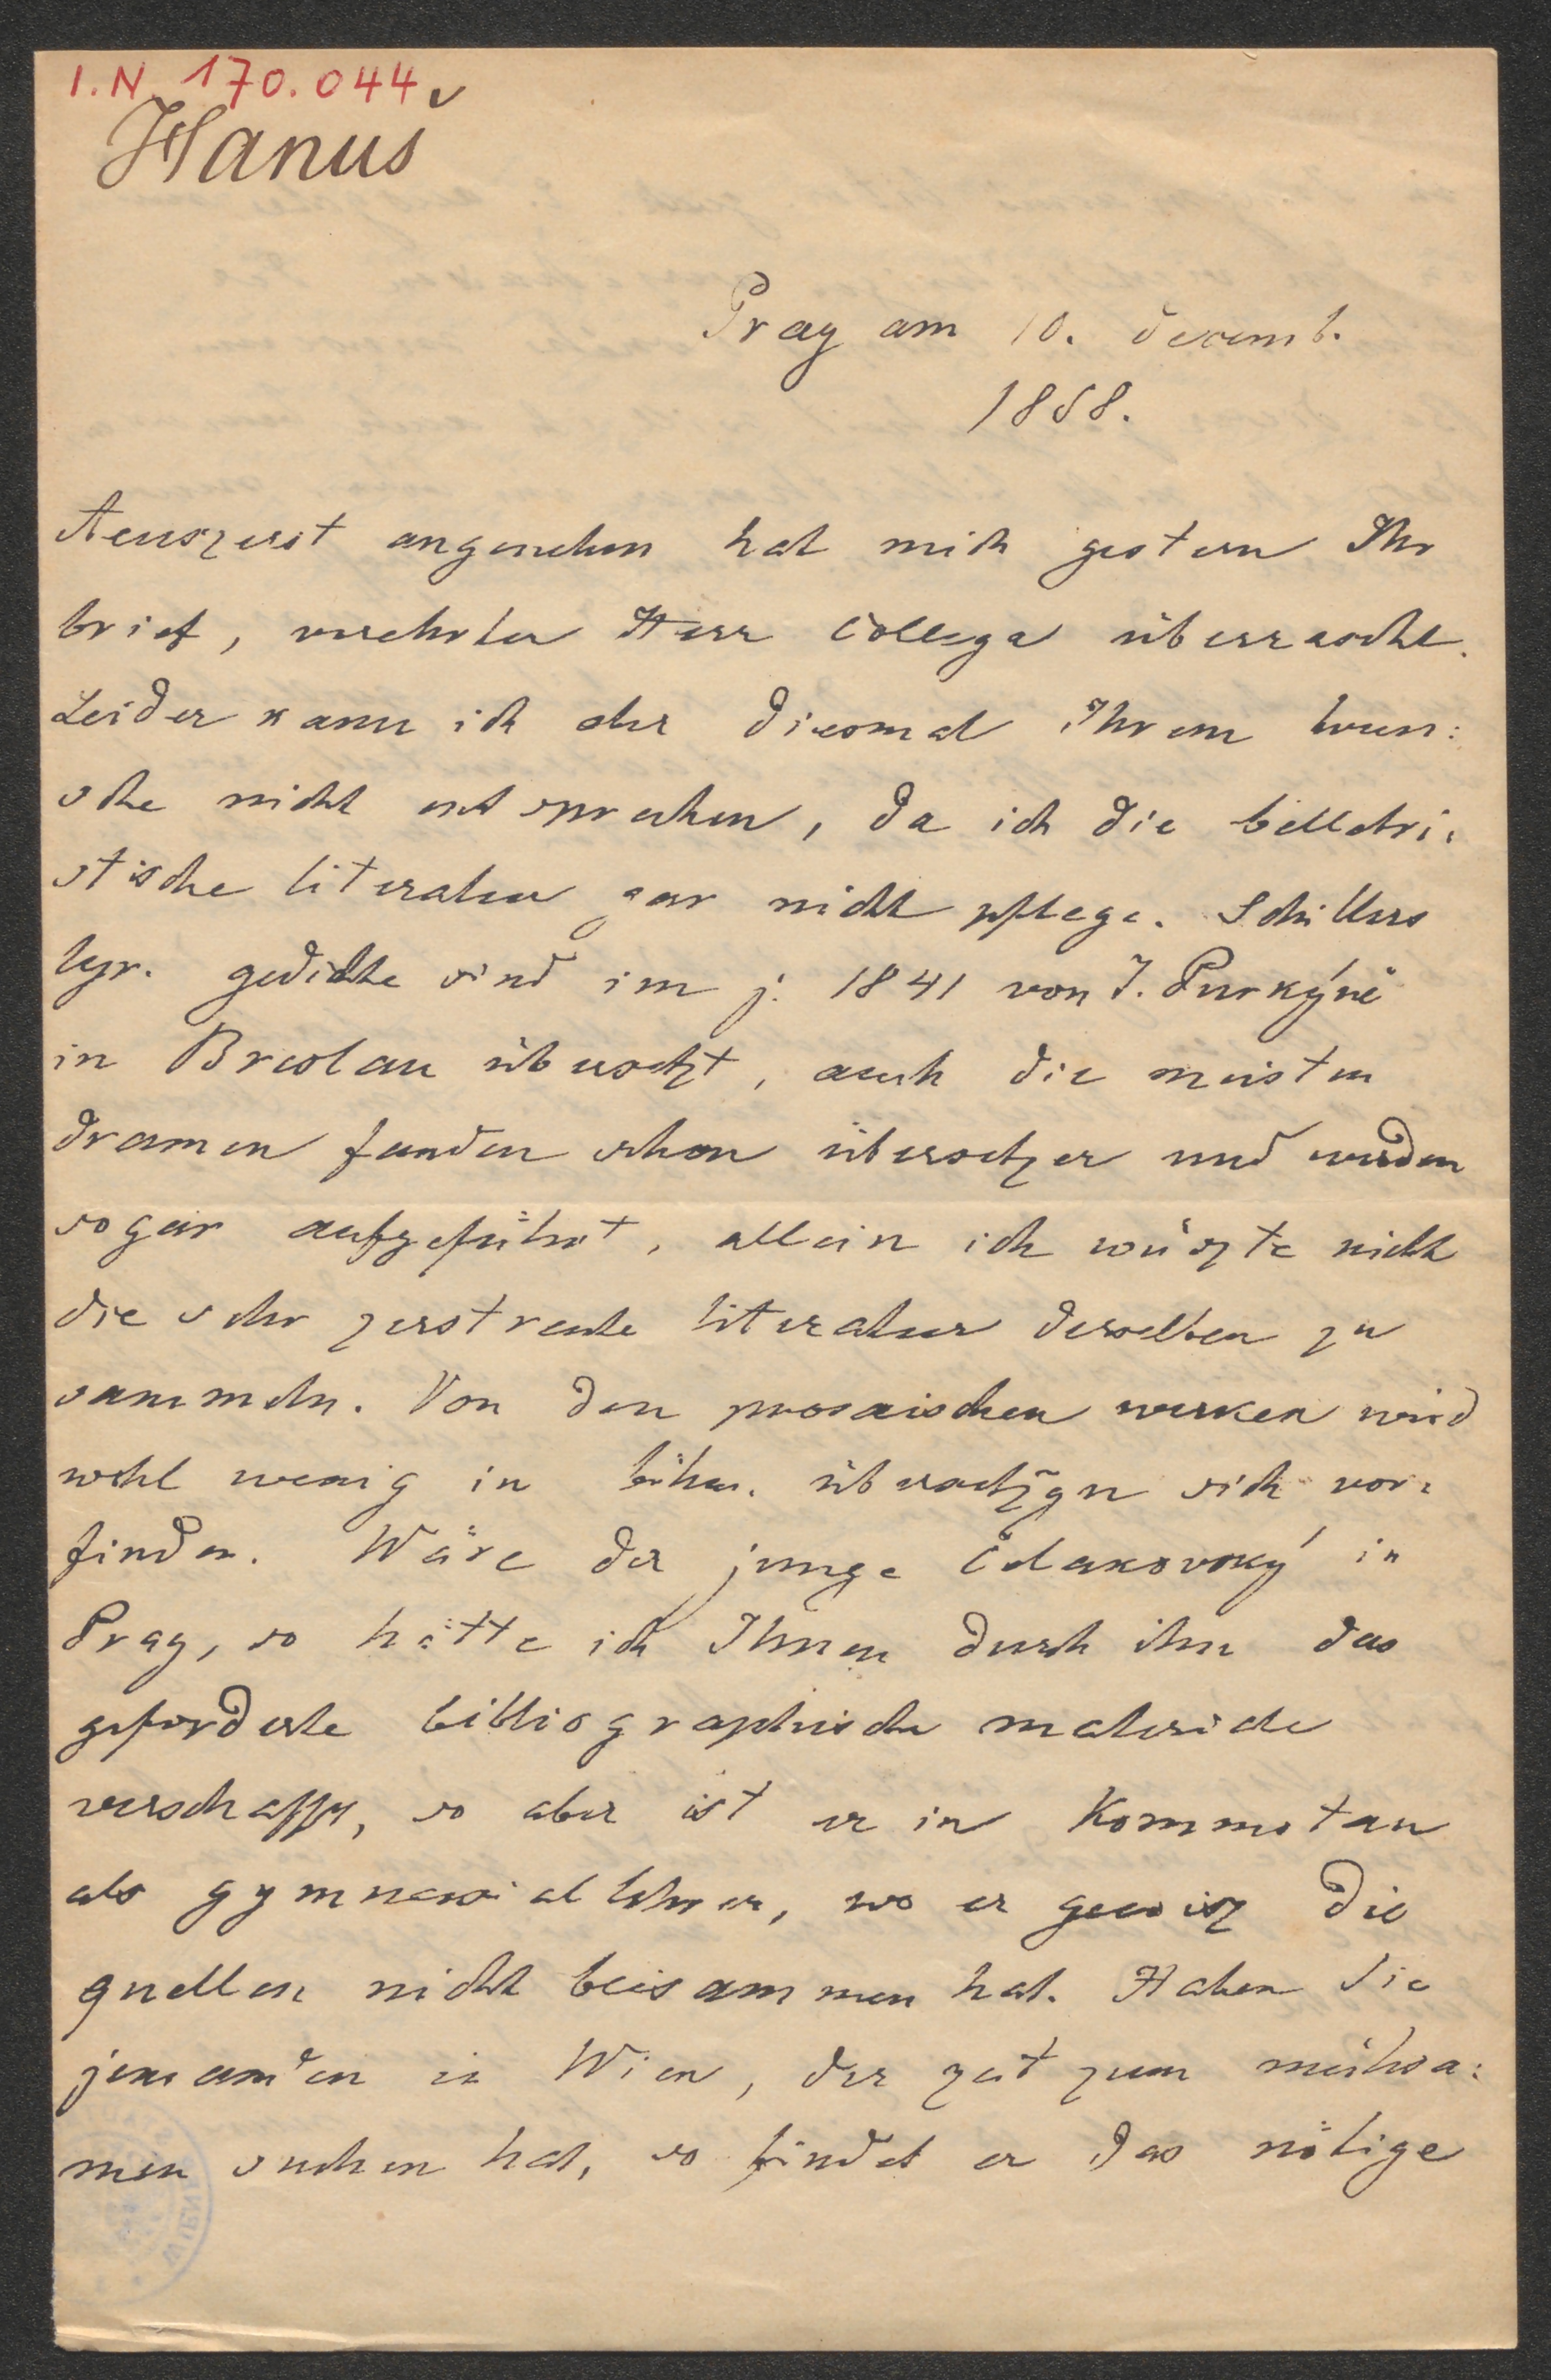 I.N. 170.044
Hanuš
Prag am 10. decemb.
1858.
Aeuszerst angenehm hat mich gestern Ihr
brief, verehrter Herr Collega überrascht.
Leider kann ich aber diesmal Ihrem wun:
sche nicht entsprechen, da ich die belletri:
stische literatur gar nicht pflege. Schillers
lyr. gedichte sind im j. 1841 von J. Purkýně
in Breslau übersetzt, auch die meisten
dramen fanden schon übersetzer und wurden
sogar aufgeführt, allein ich wüszte nicht
die sehr zerstreute literatur derselben zu
sammeln. Von den prosaischen werken wird
wohl wenig in böhm. übersetzgn sich vor:
finden. Wäre der junge Čelakovský in
Prag, so hätte ich Ihnen durch ihn das
geforderte bibliographische materiale
verschafft, so aber ist er in Kommotau
als gymnasiallehrer, wo er gewisz die
quellen nicht beisammen hat. Haben Sie
jemanden in Wien, der zeit zum mühsa:
men suchen hat, so findet er das nötige